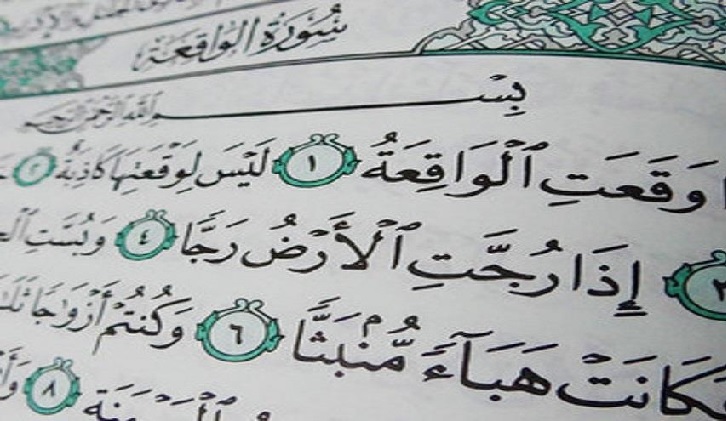 سُورَةُ الوَاقِعَة
بِسْمِ اللَّهِ الرَّحْمَنِ الرَّحِيمِ
وَقَعَتِ ٱلْوَاقِعَةُ ١ لَيْسَ لِوَقْعَتِهَا كَاذِبَةٌ ٢
٣ إِذَا رُجَّتِ ٱلْأَرْضُ رَجًّا ٤ وَبُسَّتِ
فَكَانَتْ هَبَآءً مُّنۢبَثًّا ٦ وَكُنتُمْ أَزْوَٰجًا
٨